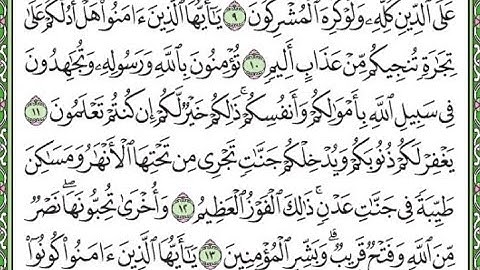 عَلَى ٱلدِّينِ كُلِّهِۦ وَلَوْ كَرِهَ ٱلْمُشْرِكُونَ ٩ يَـٰٓأَيُّهَا ٱلَّذِينَ ءَامَنُوا۟ هَلْ أَدُلُّكُمْ عَلَىٰ
تِجَـٰرَةٍ تُنجِيكُم مِّنْ عَذَابٍ أَلِيمٍ ١٠ تُؤْمِنُونَ بِٱللَّهِ وَرَسُولِهِۦ وَتُجَـٰهِدُونَ
فِى سَبِيلِ ٱللَّهِ بِأَمْوَٰلِكُمْ وَأَنفُسِكُمْ ۚ ذَٰلِكُمْ خَيْرٌ لَّكُمْ إِن كُنتُمْ تَعْلَمُونَ ١١
يَغْفِرْ لَكُمْ ذُنُوبَكُمْ وَيُدْخِلْكُمْ جَنَّـٰتٍ تَجْرِى مِن تَحْتِهَا ٱلْأَنْهَـٰرُ وَمَسَـٰكِنَ
طَيِّبَةً فِى جَنَّـٰتِ عَدْنٍ ۚ ذَٰلِكَ ٱلْفَوْزُ ٱلْعَظِيمُ ١٢ وَأُخْرَىٰ تُحِبُّونَهَا ۖ نَصْرٌ
مِّنَ ٱللَّهِ وَفَتْحٌ قَرِيبٌ ۗ وَبَشِّرِ ٱلْمُؤْمِنِينَ ١٣ يَـٰٓأَيُّهَا ٱلَّذِينَ ءَامَنُوا۟ كُونُوٓا۟